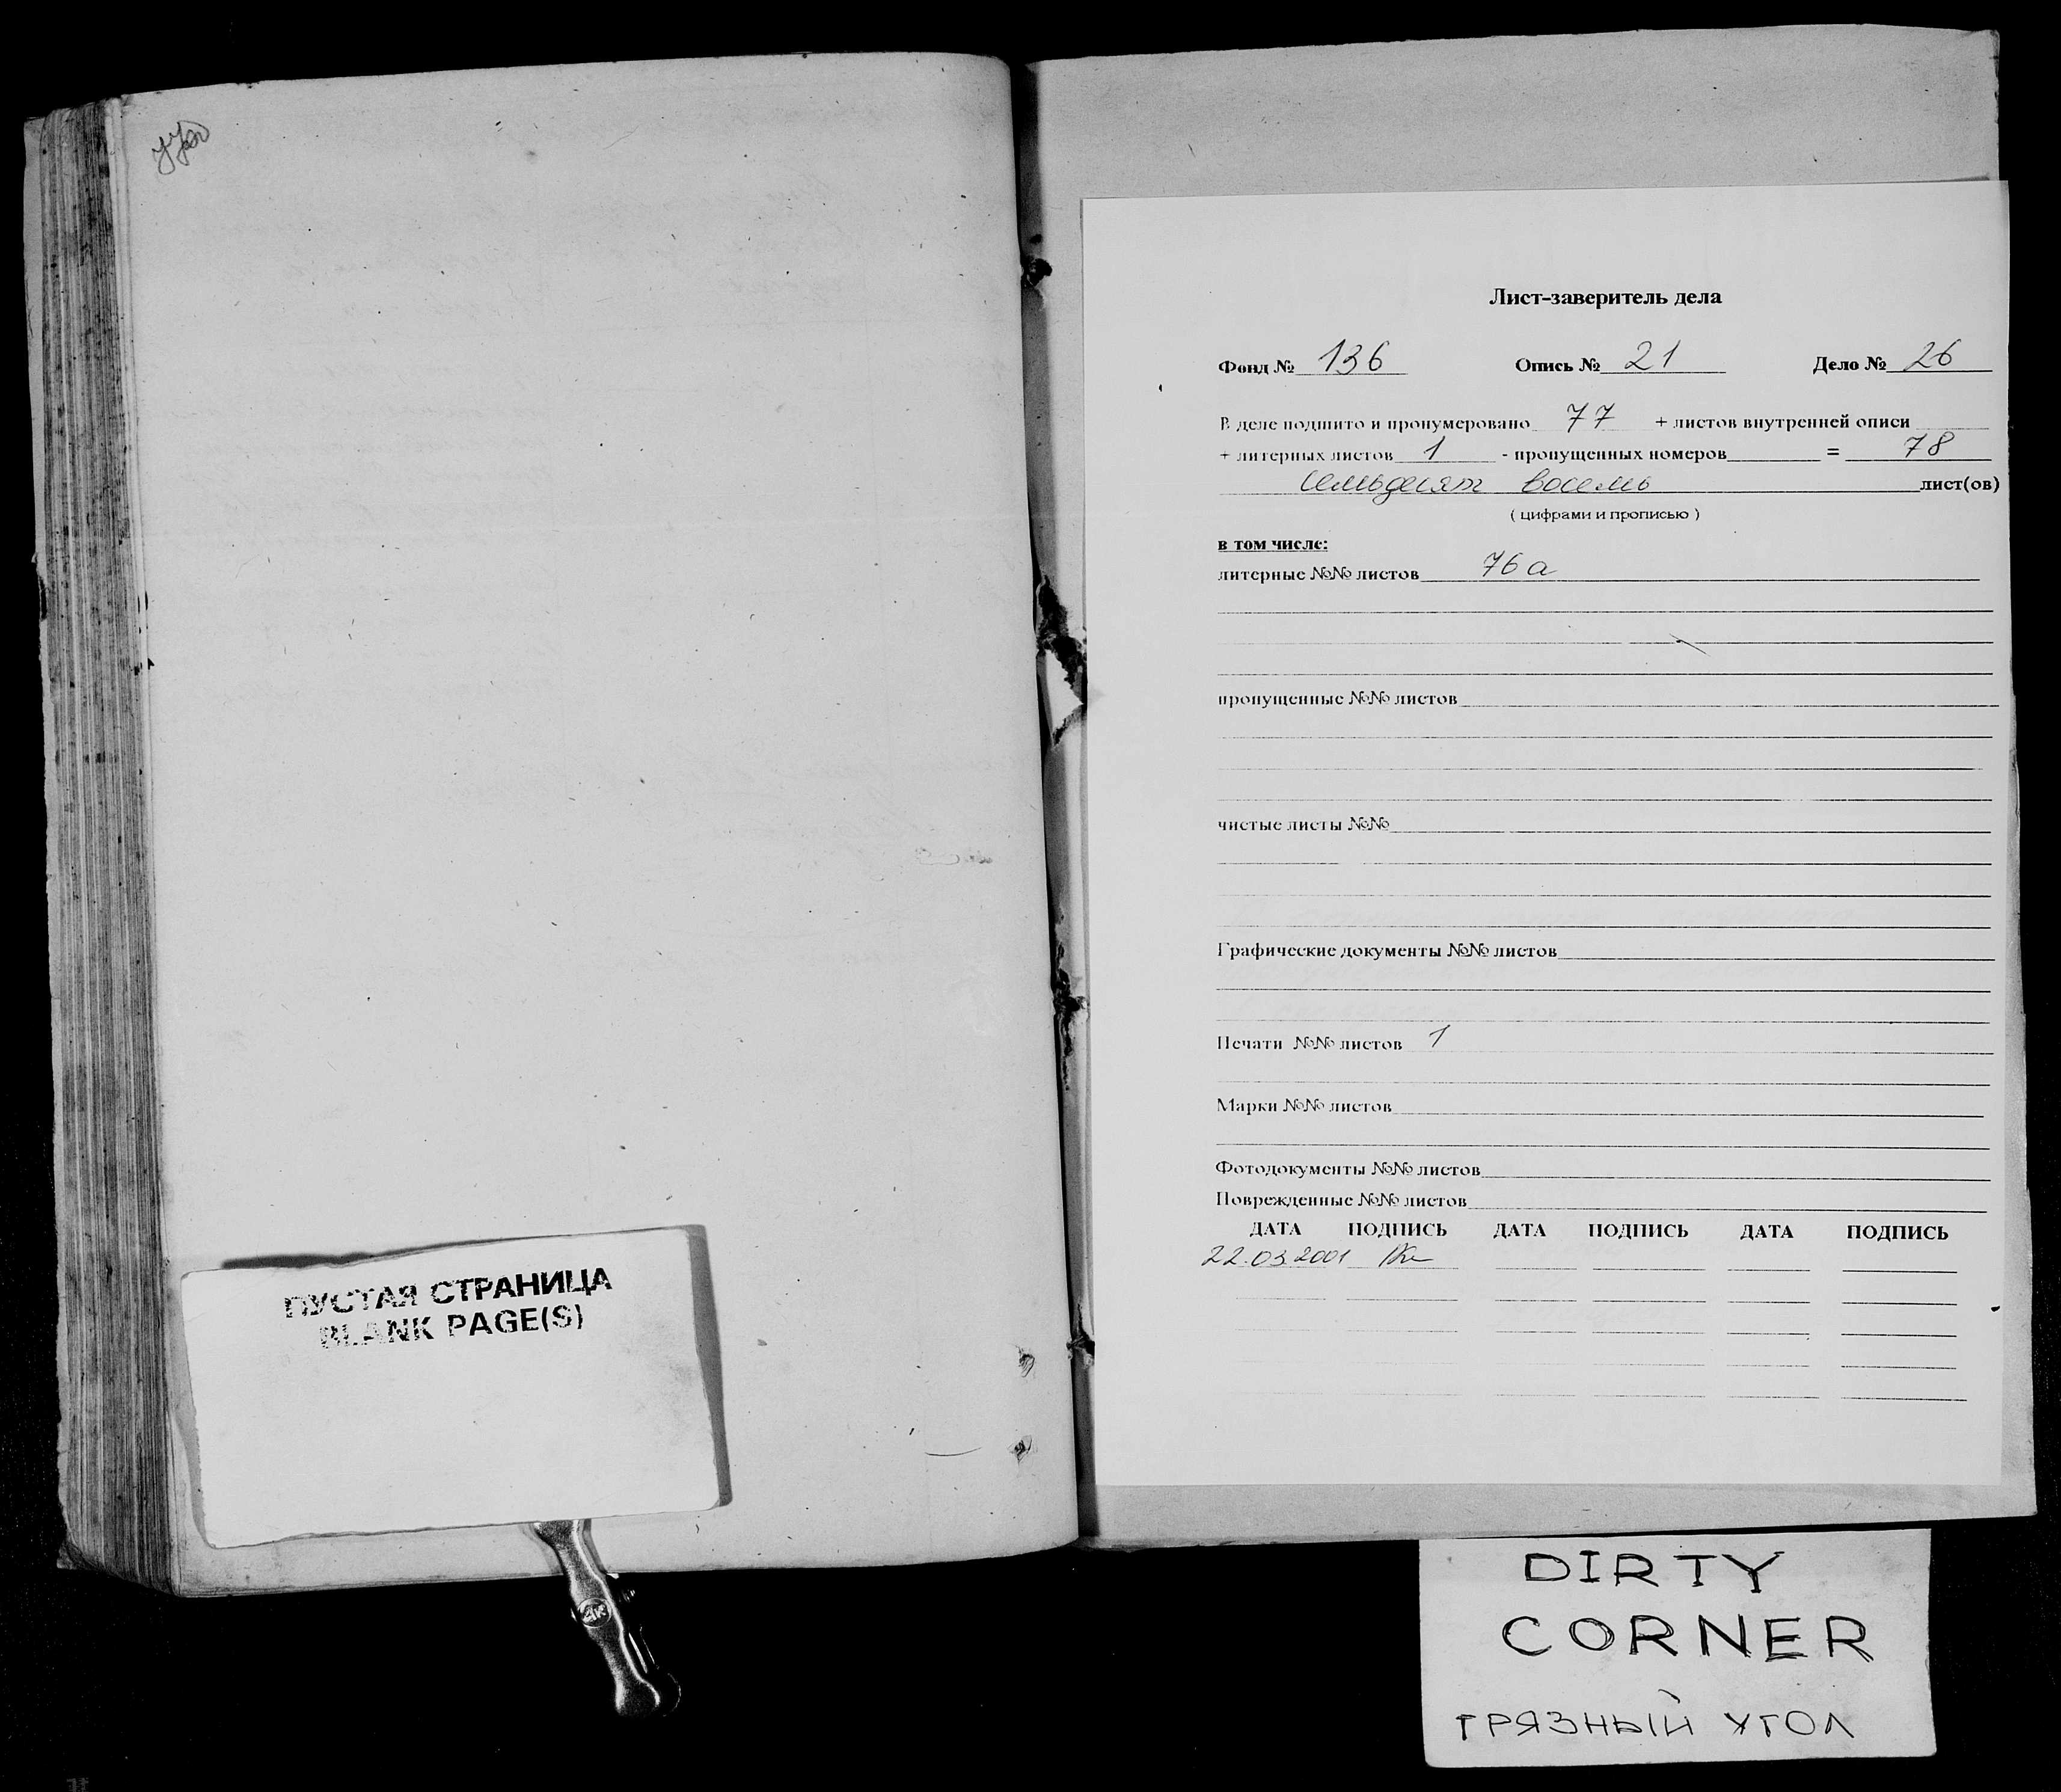 ПУСТАЯ СТРАНИЦА
BLANK PAGE(S)
Лист-заверитель дела
Фонд № 136 Опись № 21 Дело № 26
В деле подшито и пронумеровано 77 + листов внутренней описи
+ литерных листов 1 - пропущенных номеров = 78
семьдесят восемь лист(ов)
( цифрами и прописью )
в том числе:
литерные №№ листов 76а
пропущенные №№ листов
чистые листы №№
Графические документы №№ листов
Печати №№ листов 1
Марки №№ листов
Фотодокументы №№ листов
Поврежденные №№ листов
ДАТА ПОДПИСЬ ДАТА ПОДПИСЬ ДАТА ПОДПИСЬ
22.03.2001
DIRTY
CORNER
ГРЯЗНЫЙ УГОЛ